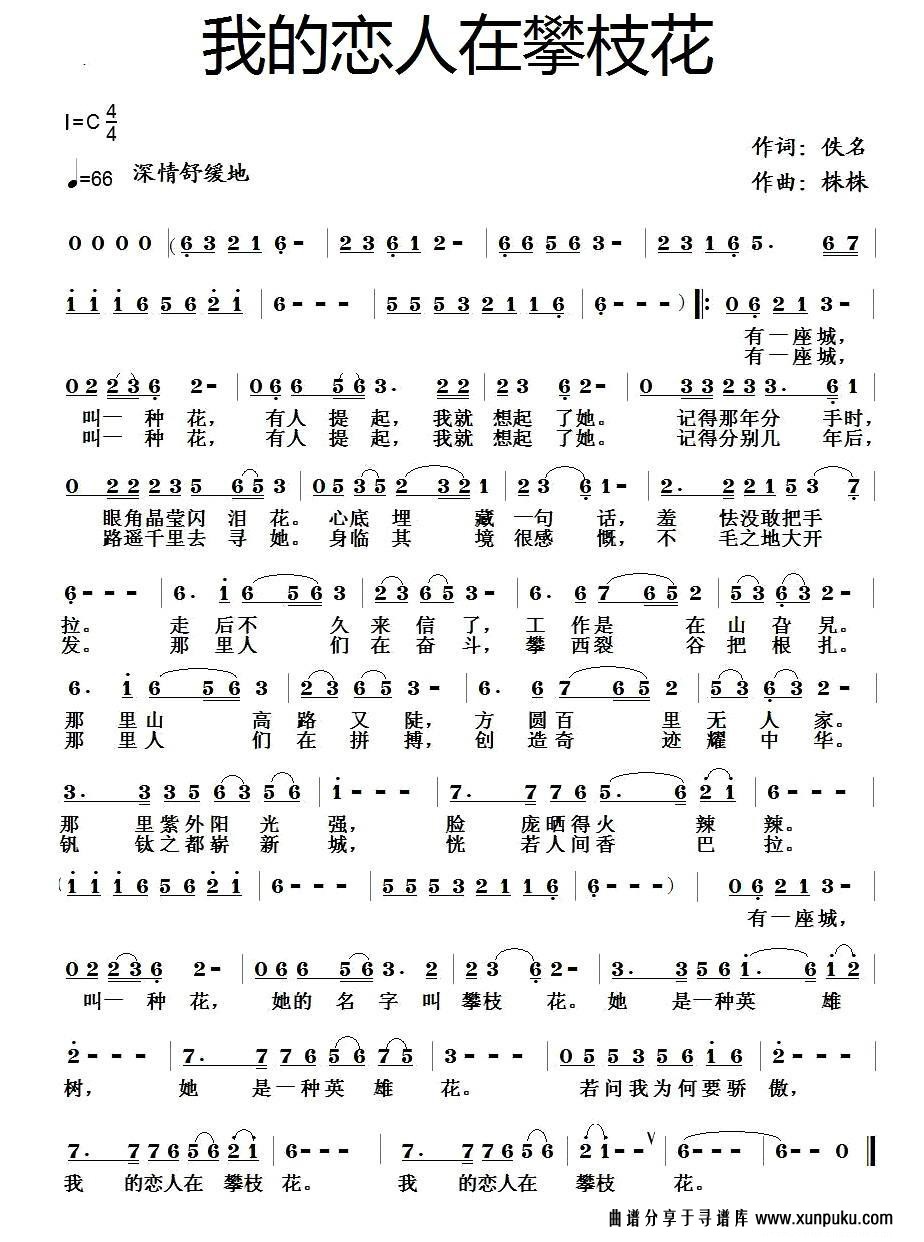 我的恋人在攀枝花
1=C 4/4
作词：佚名
♩=66 深情舒缓地
作曲：株株
0 0 0 0 | (6 3 2 1 6 - | 2 3 6 1 2 - | 6 6 5 6 3 - | 2 3 1 6 5. 6 7 |
1 1 1 6 5 6 2 1 | 6 - - - | 5 5 5 3 2 1 1 6 | 6 - - - ) ‖: 0 6 2 1 3 - |
有一座城，
有一座城，
0 2 2 3 6 2 - | 0 6 6 5 6 3. 2 2 | 2 3 6 2 - | 0 3 3 2 3 3. 6 1 |
叫一种花， 有人提起，我就想起了她。 记得那年分手时，
叫一种花， 有人提起，我就想起了她。 记得分别几年后，
0 2 2 2 3 5 6 5 3 | 0 5 3 5 2 3 2 1 | 2 3 6 1 - | 2. 2 2 1 5 3 7 |
眼角晶莹闪泪花。心底埋藏一句话，羞怯没敢把手
路遥千里去寻她。身临其境很感慨，不毛之地大开
6 - - - | 6. 1 6 5 6 3 | 2 3 6 5 3 - | 6. 6 6 7 6 5 2 | 5 3 6 3 2 - |
拉。 走后不久来信了，工作是在山旮旯。
发。 那里人们在奋斗，攀西裂谷把根扎。
6. 1 6 5 6 3 | 2 3 6 5 3 - | 6. 6 7 6 5 2 | 5 3 6 3 2 - |
那里山高路又陡，方圆百里无人家。
那里人们在拼搏，创造奇迹耀中华。
3. 3 3 5 6 3 5 6 | 1 - - - | 7. 7 7 6 5. 6 2 1 | 6 - - - |
那里紫外阳光强， 脸庞晒得火辣辣。
钒钛之都崭新城， 恍若人间香巴拉。
(1 1 1 6 5 6 2 1 | 6 - - - | 5 5 5 3 2 1 1 6 | 6 - - - ) | 0 6 2 1 3 - |
有一座城，
0 2 2 3 6 2 - | 0 6 6 5 6 3. 2 | 2 3 6 2 - | 3. 3 5 6 1. 6 1 2 |
叫一种花， 她的名字叫攀枝花。她是一种英雄
2 - - - | 7. 7 7 6 5 6 7 5 | 3 - - - | 0 5 5 3 5 6 1 6 | 2 - - - |
树， 她是一种英雄花。 若问我为何要骄傲，
7. 7 7 6 5 2 1 | 6 - - - | 7. 7 7 6 5 6 | 2 1 - - ∨ | 6 - - - | 6 - - 0 ‖
我的恋人在攀枝花。 我的恋人在攀枝花。
曲谱分享于寻谱库 www.xunpuku.com